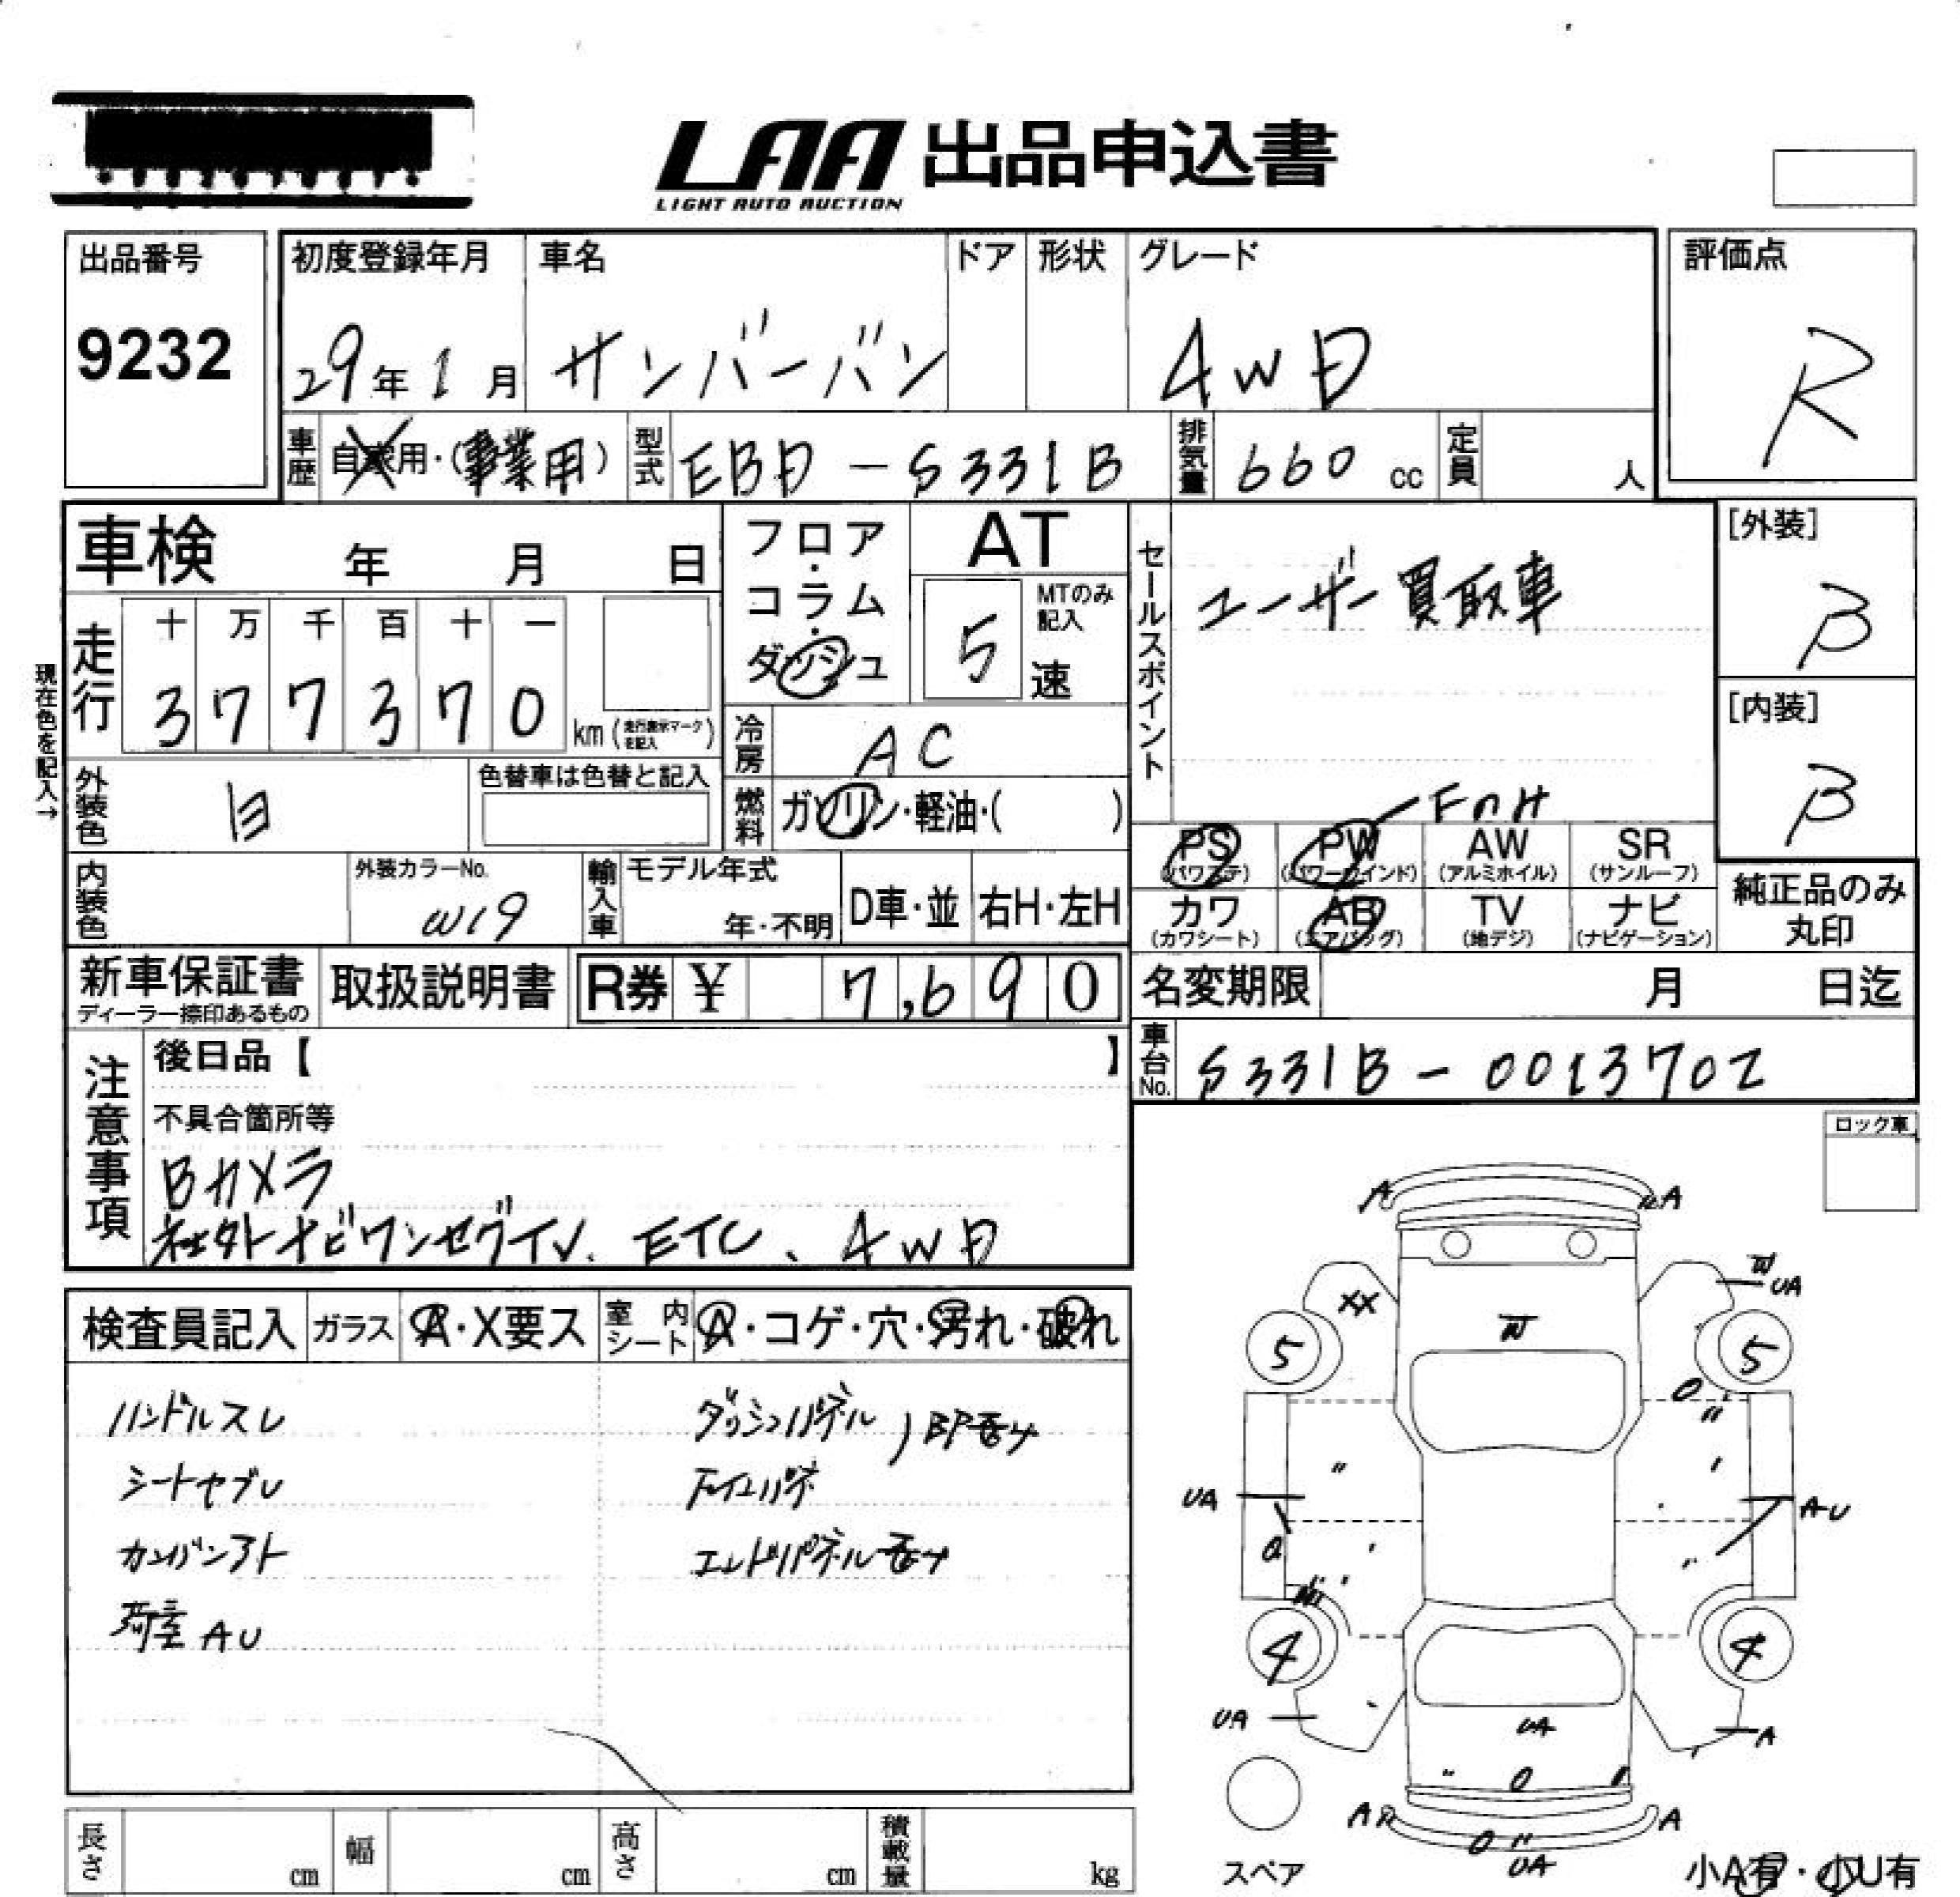 LAA 出品申込書
LIGHT AUTO AUCTION
出品番号
9232
初度登録年月
29年1月
車名
サンバーバン
ドア
形状
グレード
4WD
評価点
R
車歴
自家用・(事業用)
型式
EBD-S331B
排気量
660 cc
定員
人
車検 年 月 日
フロア・コラム・ダッシュ
AT
MTのみ記入
5速
セールスポイント
ユーザー買取車
[外装]
β
[内装]
β
現在色を記入→
走行
十 万 千 百 十 一
3 7 7 3 7 0
km(走行表示マークを記入)
冷房
AC
外装色
白
色替車は色替と記入
燃料
ガソリン・軽油・( )
FのH
PS
(パワステ)
PW
(パワーウインド)
AW
(アルミホイル)
SR
(サンルーフ)
内装色
外装カラーNo.
W19
輸入車
モデル年式
年・不明
D車・並
右H・左H
カワ
(カワシート)
AB
(エアバッグ)
TV
(地デジ)
ナビ
(ナビゲーション)
純正品のみ
丸印
新車保証書
ディーラー捺印あるもの
取扱説明書
R券 ¥ 7,690
名変期限 月 日迄
注意事項
後日品【 】
車台No.
S331B-0013702
不具合箇所等
Bカメラ
社外ナビワンセグTV、ETC、4WD
ロック車
検査員記入
ガラス
A・X要ス
室内シート
A・コゲ・穴・汚れ・破れ
ハンドルスレ
シートヤブレ
カンバンアト
荷室AU
ダッシュパネル
エンドパネル
A
A
XX
W
W
UA
5
5
UA
AU
4
4
UA
UA
A
A
A
UA
スペア
小A有・小U有
長さ cm
幅 cm
高さ cm
積載量 kg